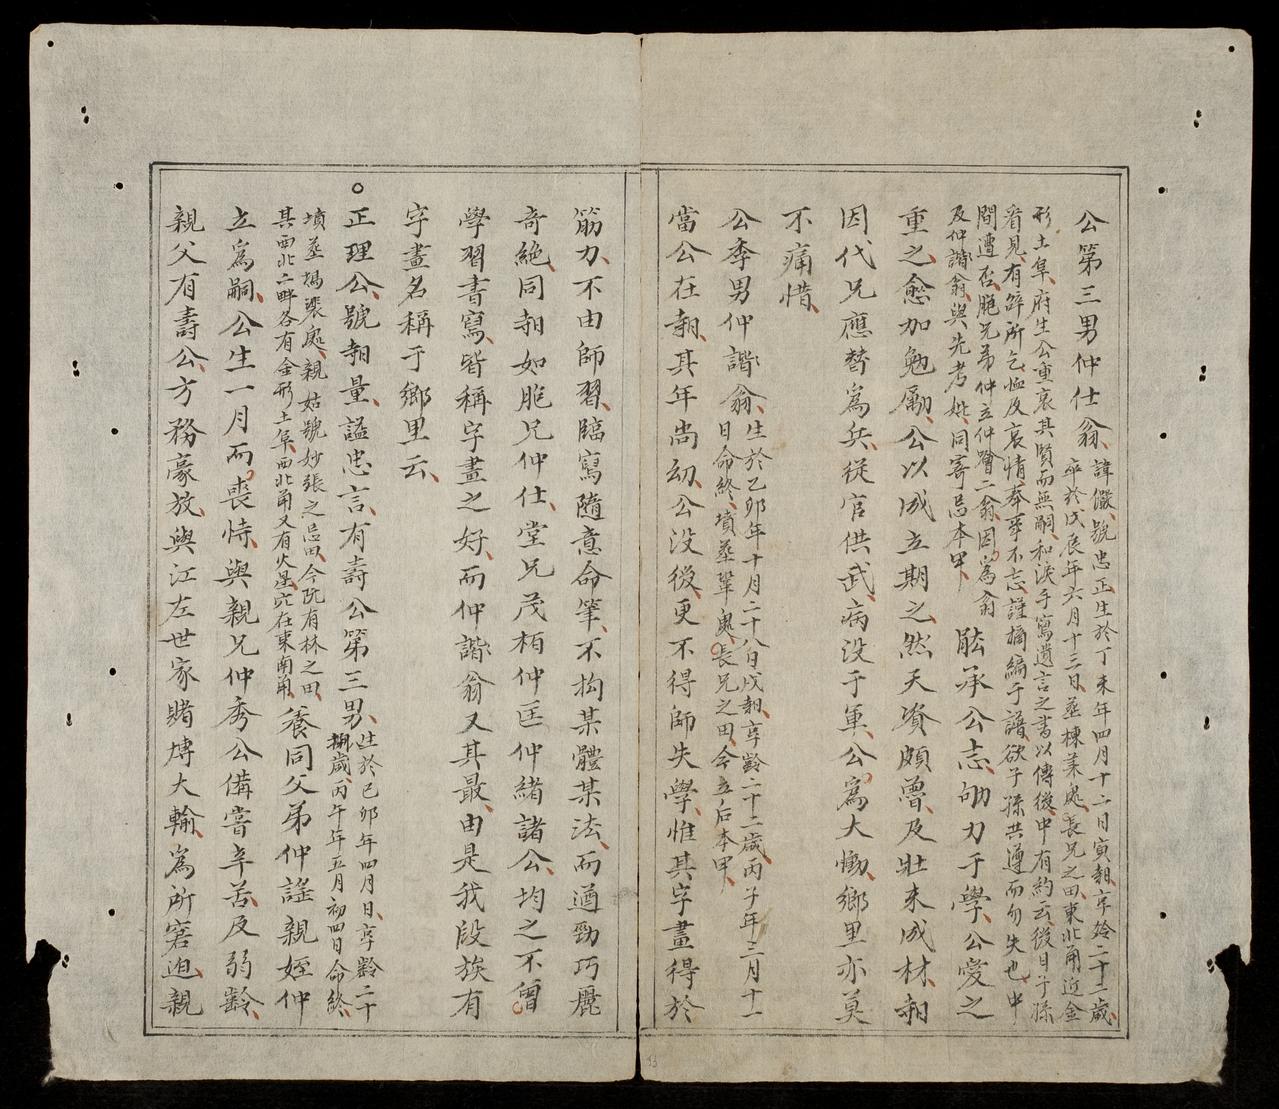 公第三男仲仕翁諱儼號忠正生於丁未年四月十二日寅朝享給二十二歲
卒於戊辰年六月十三日葬棟菜處長兄之田東北角近金
形土阜府生公重哀其賢而無嗣和淚手寫遺言之書以傳後中有約云後日子孫
看見有辞所乞恤及哀情奉事不忘謹摘編于譜欲子孫共遵而勿失也中
間遭否胞兄弟仲立仲璯二翁因為翁
及仲諧翁與先考妣同寄忌本甲能承公志劬力于學公愛之
重之愈加勉勵公以成立期之然天資頗魯及壯未成材朝
因代兄應替為兵從官供武病没于軍公為大慟鄉里亦莫
不痛惜
公季男仲諧翁生於乙卯年十月二十八日戌朝享齡二十二歲丙子年三月十一
日命終墳葬鞏處長兄之田今立后本甲
當公在朝其年尚幼公没後更不得師失學惟其字畫得於
筋力不由師習臨寫隨意命筆不拘某體某法而遒勁巧麗
奇絶同朝如胞兄仲仕堂兄茂栢仲匡仲緒諸公均之不曾
學習書寫皆稱字畫之好而仲諧翁又其最由是我段族有
字畫名稱于鄉里云
正理公號朝量謚忠言有壽公第三男生於己卯年四月日享齡二十
捌歲丙午年五月初四日命終
墳葬塢裴處親姑號妙張之忌田今阮有林之田
其西北二畔各有金形土阜西北角又有火星穴在東南角養同父弟仲謠親姪仲
立為嗣公生一月而喪恃與親兄仲秀公備嘗辛苦及弱齡
親父有壽公方務豪放與江左世家賭博大輸為所窘迫親